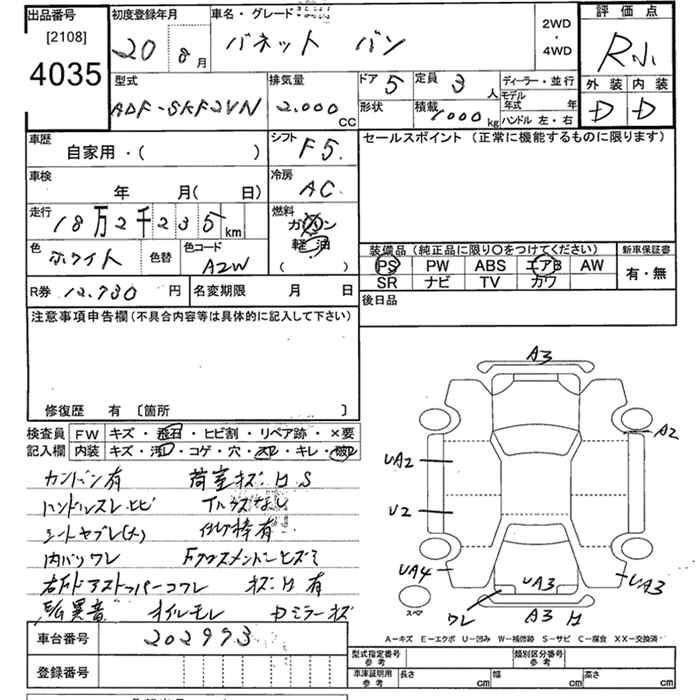 出品番号
[2108]
4035
初度登録年月
20 8月
車名・グレード
バネット バン
2WD
・
4WD
評価点
R
外装 内装
D D
型式
ADF-SKF2VN
排気量
2.000
CC
ドア 5
定員 3人
形状
積載 1000kg
ディーラー・並行
モデル
年式 年
ハンドル 左・右
車歴
自家用・( )
シフト F5.
セールスポイント (正常に機能するものに限ります)
車検
年 月( 日)
冷房 AC
走行
18万2千235km
燃料
ガソリン
軽油
( )
色 ホワイト
色替
色コード A2W
装備品 (純正品に限り○をつけてください)
新車保証書
PS PW ABS エアB AW
SR ナビ TV カワ
有・無
R券 12.730円
名変期限 月 日
後日品
注意事項申告欄(不具合内容等は具体的に記入して下さい)
修復歴 有 〔箇所 〕
検査員 FW キズ・飛石・ヒビ割・リペア跡・×要
記入欄 内装 キズ・汚れ・コゲ・穴・スレ・キレ・破れ
カンバン有 荷室キズ・H S
ハンドルスレ ヒビ
シートヤブレ(大)
内バリワレ
右ドアストッパーコワレ キズ・H 有
異音 オイルモレ Dミラーキズ
車台番号 202993
登録番号
A3
A2
UA2
U2
UA4
UA3
UA3
ワレ
A3 H
スペア
A-キズ E-エクボ U-凹み W-補修跡 S-サビ C-腐食 XX-交換済
型式指定番号
参考
類別区分番号
参考
車庫証明用
参考
長さ cm
幅 cm
高さ cm